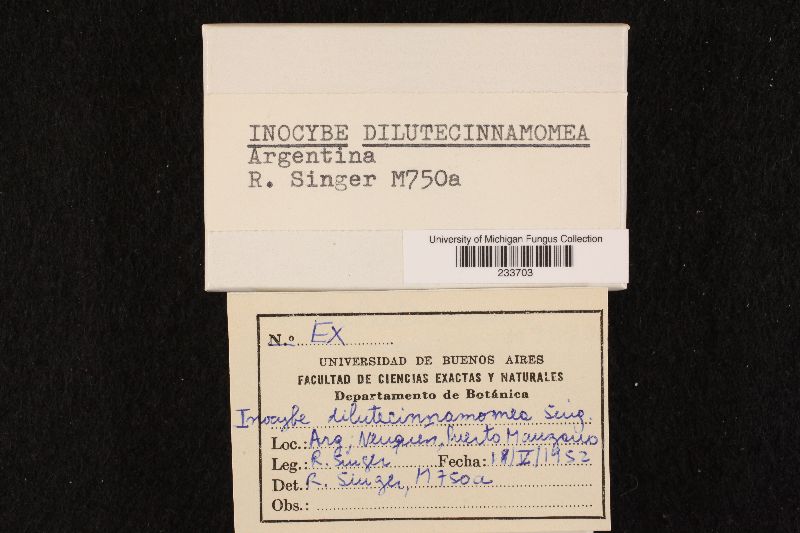 INOCYBE DILUTECINNAMOMEA
Argentina
R. Singer M750a
University of Michigan Fungus Collection
233703
N.º Ex
UNIVERSIDAD DE BUENOS AIRES
FACULTAD DE CIENCIAS EXACTAS Y NATURALES
Departamento de Botánica
Inocybe dilutecinnamomea Sing.
Loc.: Arg; Neuquen, Puerto Manzano
Leg.: R. Singer Fecha: /V/1952
Det. R. Singer, M750a
Obs.: